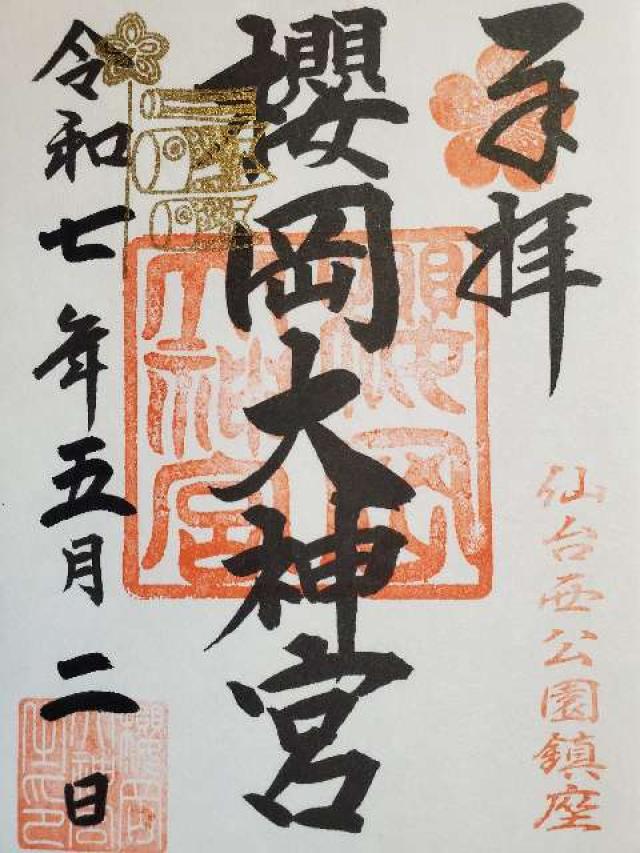 奉拝
仙台西公園鎮座
櫻岡大神宮
櫻岡
大神宮
令和七年五月二日